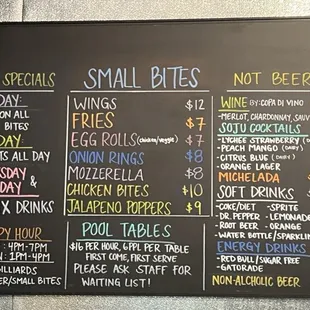 SPECIALS
DAY:
ON ALL
BITES
DAY:
TS ALL DAY
SDAY &
DAY
X DRINKS
PY HOUR
: 4PM-7PM
: 1PM-4PM
ILLIARDS
ER/SMALL BITES
SMALL BITES
WINGS $12
FRIES $7
EGG ROLLS (chicken/veggie) $7
ONION RINGS $8
MOZZERELLA $8
CHICKEN BITES $10
JALAPENO POPPERS $9
POOL TABLES
$16 PER HOUR, 6PPL PER TABLE
FIRST COME, FIRST SERVE
PLEASE ASK STAFF FOR
WAITING LIST!
NOT BEER
WINE BY: COPA DI VINO
-MERLOT, CHARDONNAY, SAUV
SOJU COCKTAILS
-LYCHEE STRAWBERRY
-PEACH MANGO
-CITRUS BLUE
-ORANGE LAGER
MICHELADA
SOFT DRINKS
-COKE/DIET -SPRITE
-DR. PEPPER -LEMONADE
-ROOT BEER -ORANGE
-WATER BOTTLE/SPARKLIN
ENERGY DRINKS
-RED BULL/SUGAR FREE
-GATORADE
NON-ALCHOLIC BEER